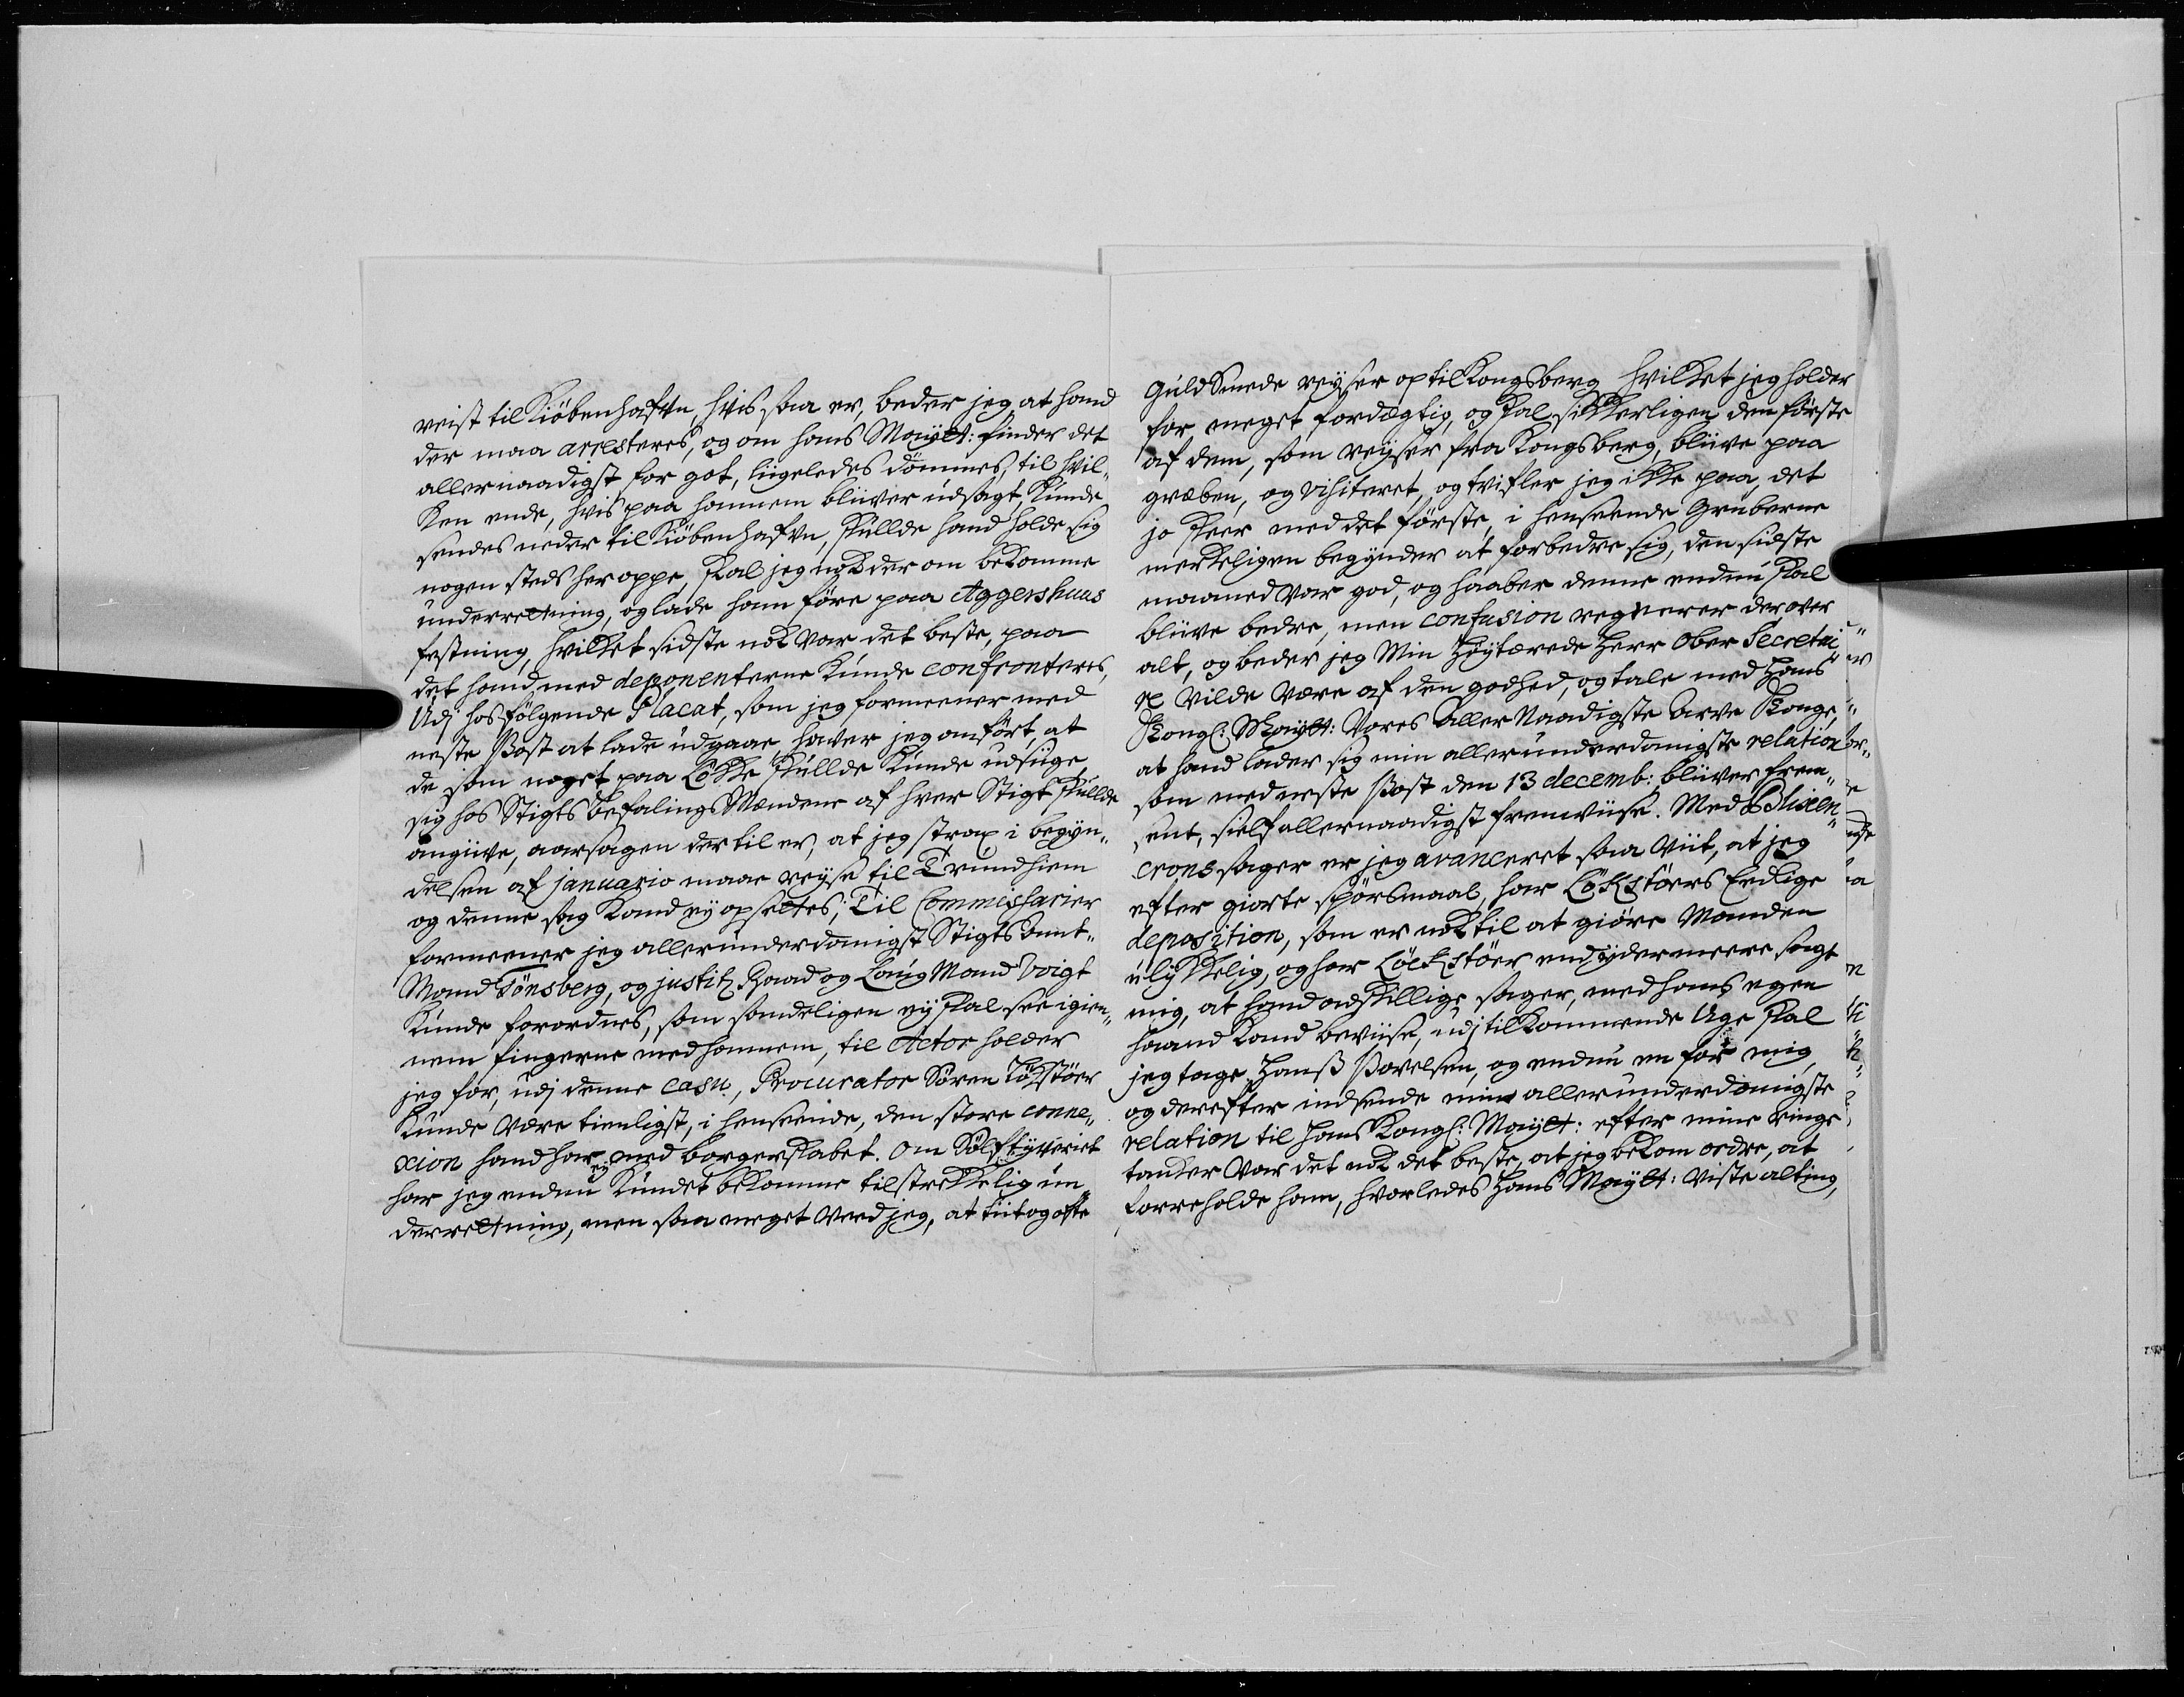 reist til Kiöbenhafvn, hvis saa er, beder jeg, at hand
der maa arresteres, og om hans Mayttt: finder det
allernaadigst for got, liigeledes dömmes, til hvil„
ken ende, hvis paa hannem bliiver udsagt, kunde
sendes neder til Kiöbenhafvn, skullde hand holde sig
nogen steds her oppe, skal jeg nok der om bekomme
underrettning, og lade ham före paa Aggershuus
festning, hvilket sidste nok var det beste, paa
det hand, med deponenterne kunde confronteres,
Udj hosfölgende Placat, som jeg formeener med
neste Post at lade udgaae, haver jeg anfört, at
de som noget paa Lökke skullde kunde udsiige,
sig hos Stigts Befalings Mændene af hver Stigt skullde
angiive, aarsagen der til er, at jeg strax i begyn„
delsen af januario maae reyse til Trundhiem
og denne sag kand ey opsettes; Til Commissarier
formeener jeg allerunderdanigst Stigts Amt„
Mand Tönsberg, og justitz Raad og Laug Mand Voigt
kunde forordnes, som sandeligen ey skal see igien„
nem fingerne med hannem, til Actor holder
jeg for, udj denne casu, Procurator Sören Lökstöer
kunde være tienligst, i henseende, den store conne„
xion hand har med borgerskabet. Om Sölftyveriet
har jeg endnu ey kundet bekomme tilstrekkelig un„
derrettning, men saa meget veed jeg, at tiit og ofte
Guld Smede reyser op til Kongsberg hvilket jeg holder
for meget fordægtig, og skal sikkerligen den förste
af dem, som reyser fra Kongsberg, bliive paa
greben, og visiteret, og tvifler jeg ikke paa, det
jo skeer med det förste, i henseende Gruberne
merkeligen begynder at forbedre sig, den sidste
maaned var god, og haaber denne endnu skal
bliive bedre, men confusion regnerer der over
alt, og beder jeg Min Höytærede Herr Ober Secretai„
re vilde være af den godhed, og tale med Hans
Kongl: Maytt: Vores Aller Naadigste Arve Konge,
at hand lader sig min allerunderdanigste relation
som med neste Post den 13 decemb: bliiver frem„
sent, sielf allernaadigst fremviise. Med Blixen„
crons sager er jeg avanceret saa viit, at jeg
efter giorte spörsmaal, har Lökstöers Eedlige
deposition, som er nok til at giöre Manden
ulykkelig, og har Löckstöer end ydermeere sagt
mig, at hand adskillige sager, med hans egen
haand kand beviise, udj tilkommende Uge skal
jeg tage Hanß Povelsen, og endnu en for mig,
og derefter indsende min allerunderdanigste
relation til Hans Kongl: Maytt: efter mine ringe
tanker var det nok det beste, at jeg bekom ordre, at
forreholde ham, hvorledes Hans Maytt: viste alting,